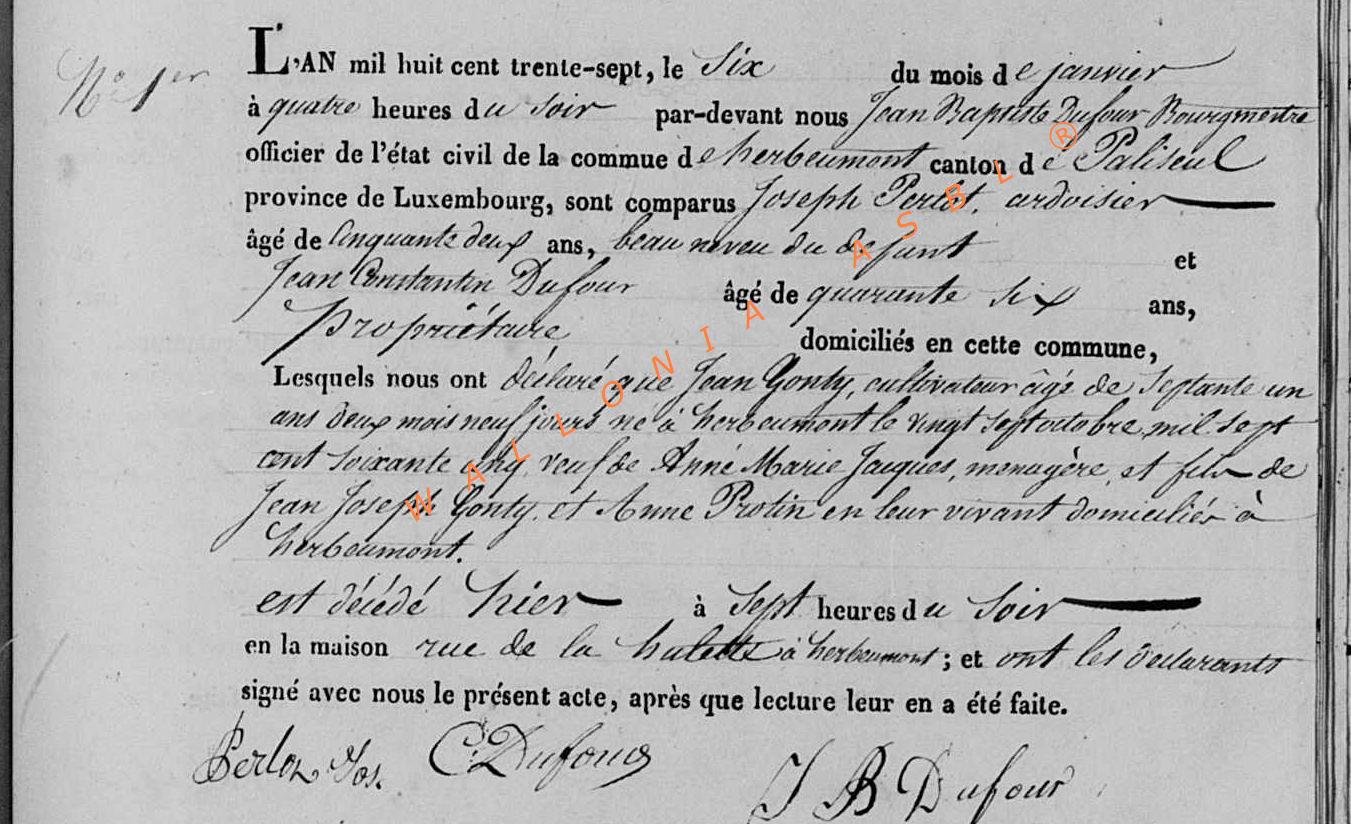 N° 1er
L'AN mil huit cent trente-sept, le Six du mois de janvier
à quatre heures du soir par-devant nous Jean Baptiste Dufour Bourgmestre
officier de l'état civil de la commue de herbeumont canton de Paliseul
province de Luxembourg, sont comparus Joseph Perlot, ardoisier
âgé de Cinquante deux ans, beau neveu du defunt et
Jean Constantin Dufour âgé de quarante six ans,
Propriétaire domiciliés en cette commune,
Lesquels nous ont déclaré que Jean Gonty, cultivateur âgé de Septante un
ans deux mois neuf jours né à herbeumont le vingt sept octobre mil sept
cent soixante cinq, veuf de Anne Marie Jacques, menagère, et fils de
Jean Joseph Gonty, et Anne Protin en leur vivant domiciliés à
herbeumont.
est décédé hier à Sept heures du Soir
en la maison rue de la à herbeumont ; et ont les déclarants
signé avec nous le présent acte, après que lecture leur en a été faite.
Perlot Jos. C. Dufour
J B Dufour
WALLONIA ASBL ®